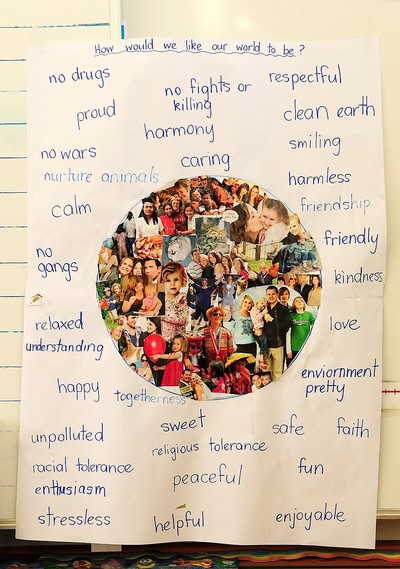 How would we like our world to be?
no drugs
no fights or
killing
respectful
proud
clean earth
harmony
smiling
no wars
caring
nurture animals
harmless
calm
friendship
no
gangs
friendly
kindness
relaxed
love
understanding
happy
enviornment
pretty
togetherness
sweet
safe
faith
unpolluted
religious tolerance
racial tolerance
peaceful
fun
enthusiasm
stressless
helpful
enjoyable